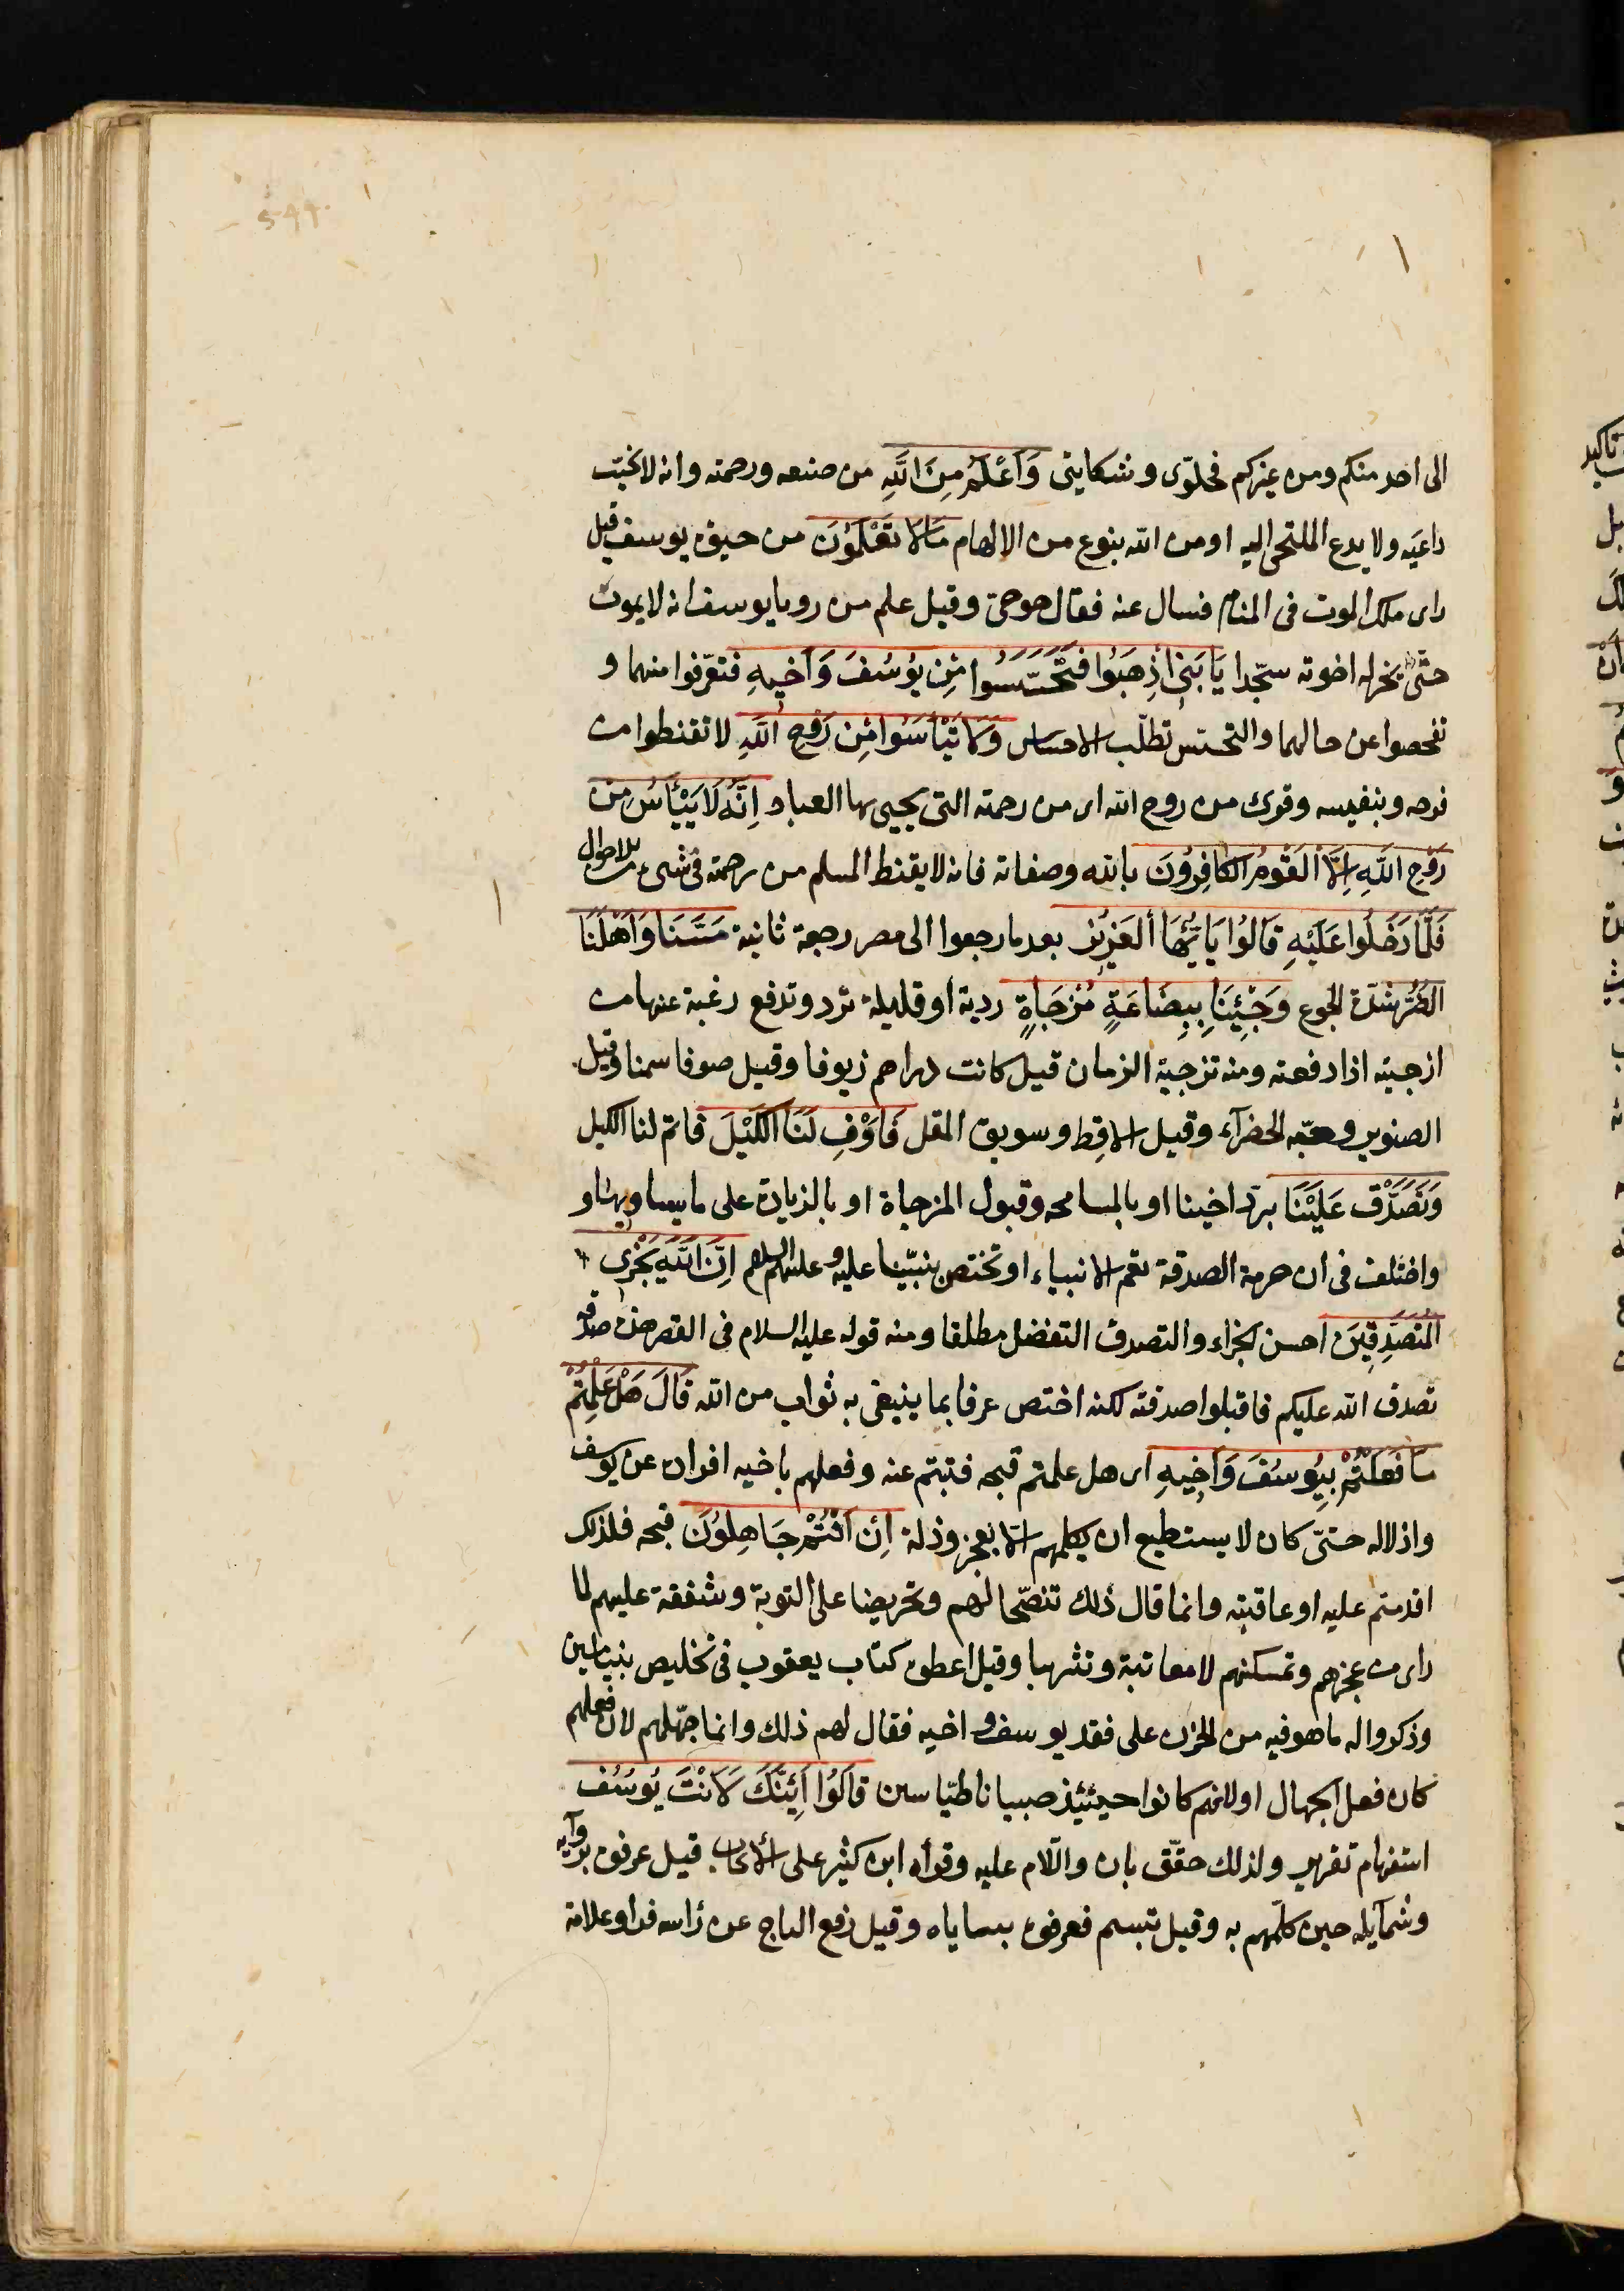 الى احد منكم ومن غيركم فخلوّى وشكايتى وَاَعْلَمُ مِنَ اللّٰهِ من صنعه ورحمته وانه لا يخيب
داعيَه ولا يدع الملتجى اليه او من الله بنوع من الالهام مَالَا تَعْلَمُوْنَ من حيوة يوسف قيل
راى ملك الموت فى المنام فسال عنه فقال هو حىّ وقيل علم من رويا يوسف انه لا يموت
حتّى يخرله اخوته سجّدا يَا بَنِىَّ اذْهَبُوا فَتَحَسَّسُوا مِنْ يُوسُفَ وَاَخِيهِ فتعرّفوا منهما و
تفحصوا عن حالهما والتحسّس تطلّب الاحساس وَلَا تَيْأَسُوا مِن رَوْحِ اللّٰهِ لا تقنطوا من
فرجه وتنفيسه وقرئ من روح الله اى من رحمته التى يحيى بها العباد اِنَّهُ لَا يَيْأَسُ مِنْ
رَوْحِ اللّٰهِ اِلَّا الْقَوْمُ الْكَافِرُونَ بالله وصفاته فانه لا يقنط المسلم من رحمته فى شىء من الاحوال
فَلَمَّا دَخَلُوا عَلَيْهِ قَالُوا يَا اَيُّهَا الْعَزِيْز بعد ما رجعوا الى مصر رجعة ثانية مَسَّنَا وَاَهْلَنَا
الضُّرُّ شدّة الجوع وَجِئْنَا بِبِضَاعَةٍ مُزْجَاةٍ ردية او قليلة ترد وتدفع رغبة عنها من
ازجيته اذا دفعته ومنه تزجية الزمان قيل كانت دراهم زيوفا وقيل صوفا سمنا وقيل
الصنوبر وحبّه الخضرآء وقيل الاقِط وسويق المقل فَاَوْفِ لَنَا الْكَيْلَ فاتم لنا الكيل
وَتَصَدَّقْ عَلَيْنَا بردّ اخينا او بالمسامحه وقبول المزجاة او بالزيادة على ما يساويها و
واختلف فى ان حرمة الصدقة تعم الانبياء او تختص بنبيّنا عليه و عليهم السلم اِنَّ اللّٰهَ يَجْزِى
الْمُتَصَدِّقِيْنَ احسن الجزاء والتصدق التفضل مطلقا ومنه قوله عليه السلام فى القصر هذه صدقه
تصدق الله عليكم فاقبلوا صدقته لكنه اختص عرفا بما ينبغى به ثواب من الله قَالَ هَلْ عَلِمْتُمْ
مَا فَعَلْتُمْ بِيُوسُفَ وَاَخِيهِ اى هل علمتم قبحه فتبتم عنه وفعلهم باخيه افراده عن يوسف
واذلاله حتّى كان لا يستطيع ان يكلمهم الّا بعجز وذلة اِذْ اَنْتُمْ جَاهِلُوْنَ قبحه فلذلك
اقدمتم عليه او عاقبته وانما قال ذلك تنصّحا لهم وتحريضا على التوبة وشفقة عليهم لما
راى من عجزهم وتمسكنهم لا معاتبة وتثريبا وقيل اعطوه كتاب يعقوب فى تخليص بنيامين
وذكروا له ما هو فيه من الحزن على فقد يوسف و اخيه فقال لهم ذلك وانما جهّلهم لان فعلهم
كان فعل الجهال او لانهم كانوا حينئذ صبيانا طيّاسين قَالُوا اَئِنَّكَ لَاَنْتَ يُوسُف
استفهام تقرير ولذلك حقّق بان واللّام عليه وقرأه ابن كثير على الايجاب قيل عرفوه بروآيه
وشمآيله حين كلّمهم به وقيل تبسم فعرفوه بثناياه وقيل رفع التاج عن رأسه فراو علامة